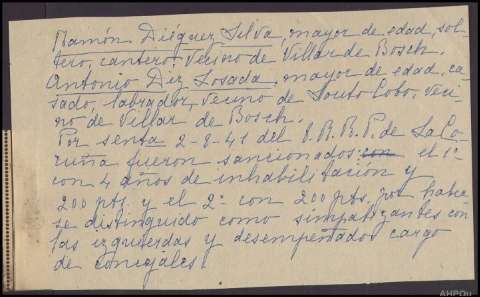 Ramón Diéguez Silva, mayor de edad, sol-
tero, cantero, vecino de Villar de Bosch.
Antonio Diz Losada, mayor de edad, ca-
sado, labrador, vecino de Souto Cobo, veci-
no de Villar de Bosch.
Por senta 2-8-41 del T.R.R.P. de La Co-
ruña fueron sancionados: con el 1º
con 4 años de inhabilitacion y
200 pts. y el 2º con 200 pts, por habe
se distinguido como simpatizantes con
las izquierdas y desempeñados cargo
de concejales.
AHPOu